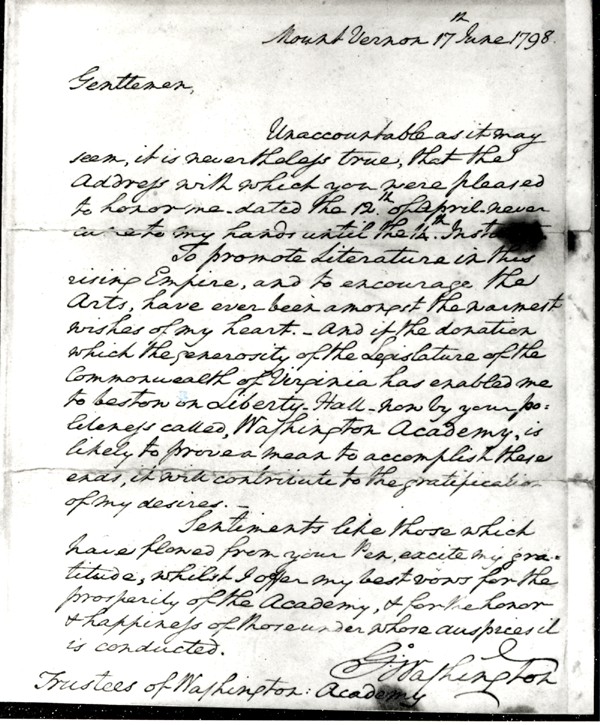 Mount Vernon 17th June 1798.
Gentlemen,
Unaccountable as it may
seem, it is nevertheless true, that the
Address with which you were pleased
to honor me dated the 12th of April never
came to my hands until the 14th Inst
To promote Literature in this
rising Empire, and to encourage the
Arts, have ever been amongst the warmest
wishes of my heart. - And if the donation
which the generosity of the Legislature of the
Commonwealth of Virginia has enabled me
to bestow on Liberty-Hall - now by your po:
liteness called, Washington Academy, is
likely to prove a mean to accomplish these
ends, it will contribute to the gratification
of my desires. -
Sentiments like those which
have flowed from your Pen, excite my gra:
titude, whilst I offer my best vows for the
prosperity of the Academy, & for the honor
& happiness of those under whose auspices it
is conducted.
Go Washington
Trustees of Washington: Academy